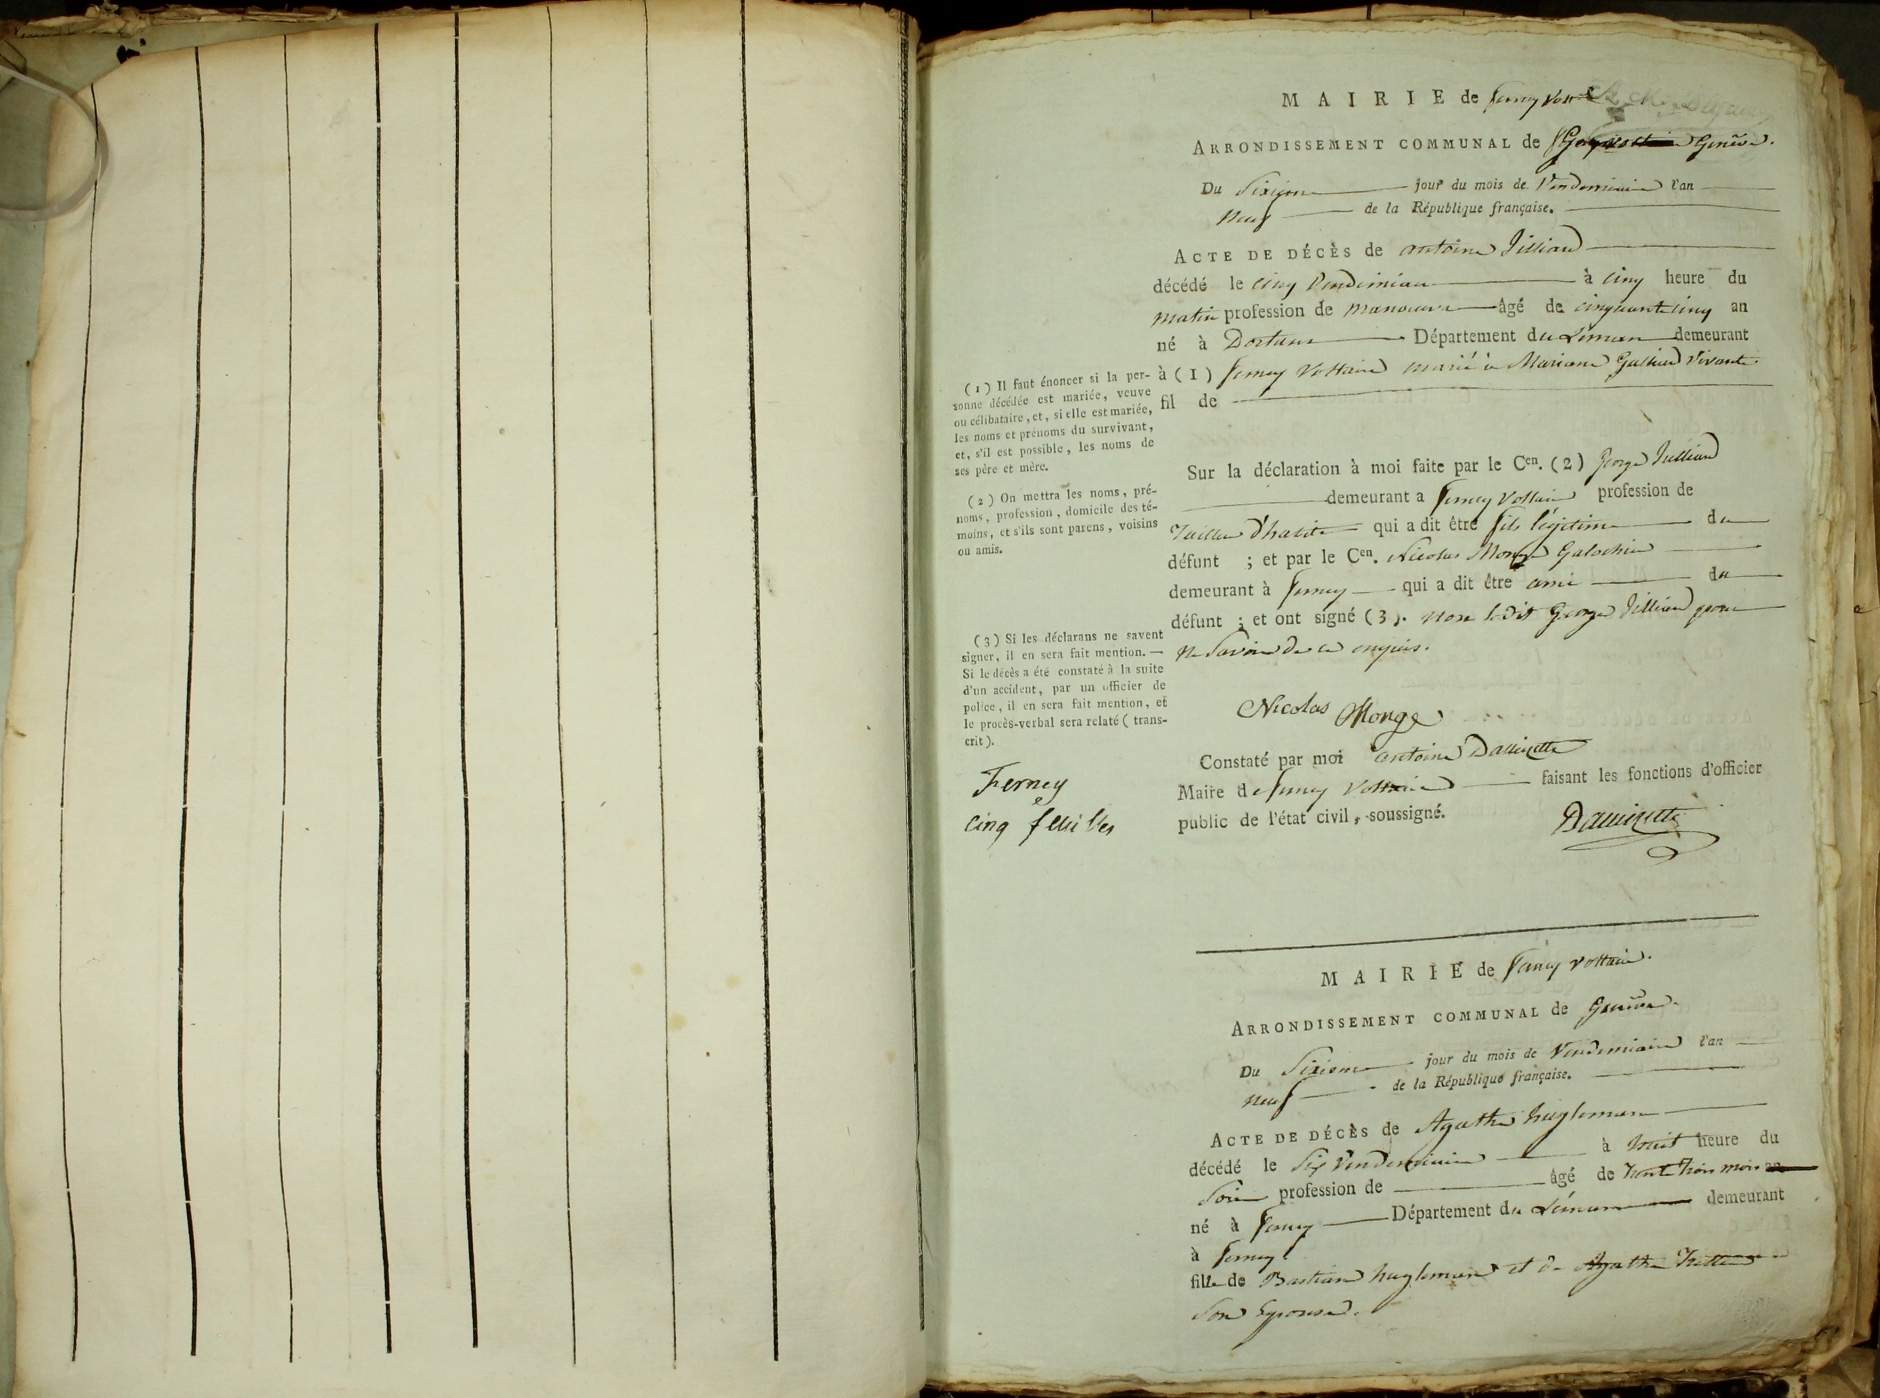 MAIRIE de Ferney Voltaire
ARRONDISSEMENT COMMUNAL de Genève.
Du Sixieme jour du mois de Vendemiaire l'an
neuf de la République française.
ACTE DE DÉCÈS de antoine Jillion
décédé le cinq Vendemiaire à cinq heure du
matin profession de manoeuvre âgé de cinquante cinq an
né à Dortans Département du Léman demeurant
à (1) ferney Voltaire marié à Mariane vivante.
fil de
(1) Il faut énoncer si la per-
sonne décédée est mariée, veuve
ou célibataire, et, si elle est mariée,
les noms et prénoms du survivant,
et, s'il est possible, les noms de
ses père et mère.
(2) On mettra les noms, pré-
noms, profession, domicile des té-
moins, et s'ils sont parens, voisins
ou amis.
Sur la déclaration à moi faite par le Cen. (2) George Jullion
demeurant a ferney Voltaire profession de
Tailleur d'habits qui a dit être fils légitime du
défunt ; et par le Cen. Nicolas Monge Galochier
demeurant à ferney qui a dit être ami du
défunt ; et ont signé (3). non ledit George Jillion pour
ne savoir de ce enquis.
(3) Si les déclarans ne savent
signer, il en sera fait mention. —
Si le décès a été constaté à la suite
d'un accident, par un officier de
police, il en sera fait mention, et
le procès-verbal sera relaté ( trans-
crit ).
Nicolas Monge
Constaté par moi antoine
Maire de ferney Voltaire faisant les fonctions d'officier
public de l'état civil, soussigné.
Ferney
cinq feuilles
MAIRIE de ferney voltaire.
ARRONDISSEMENT COMMUNAL de Genève.
Du Sixieme jour du mois de Vendemiaire l'an
neuf de la République française.
ACTE DE DÉCÈS de Agathe huglemann
décédé le Six Vendemiaire à huit heure du
soir profession de âgé de trente trois mois an
né à ferney Département du Léman demeurant
à ferney
fille de Bastian huglemann et de Agathe
son Epouse.